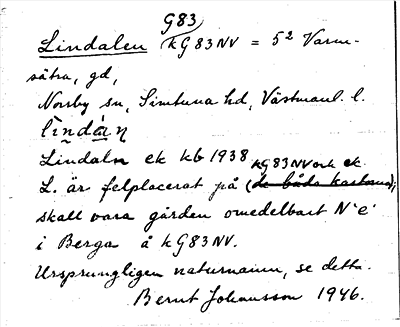 G83
Lindalen kG83NV = 5² Varm-
sätra, gd,
Norrby sn, Simtuna hd, Västmanl. l.
lìndáƞ
Lindaln ek kb 1938 kG83NV och ek
L. är felplacerat på (de båda kartorna),
skall vara gården omedelbart N`e´
i Berga å kG83NV.
Ursprungligen naturnamn, se detta.
Bernt Johansson 1946.